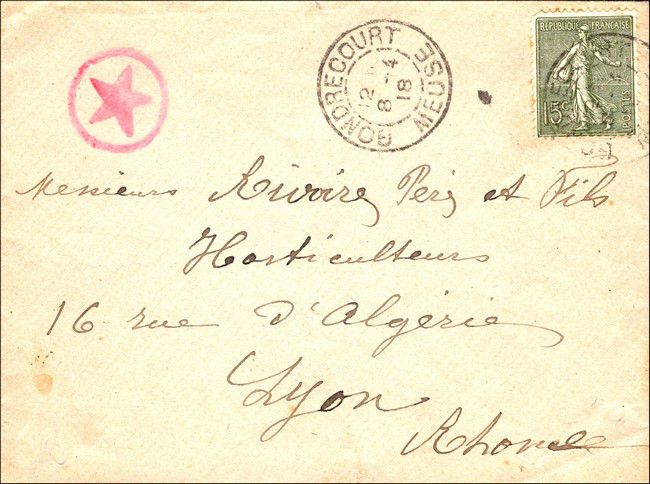 GONDRECOURT MEUSE
12
8 - 4
18
REPUBLIQUE FRANÇAISE
15c
POSTES
Messieurs Rivoire Père et Fils
Horticulteurs
16 rue d'Algérie
Lyon
Rhone